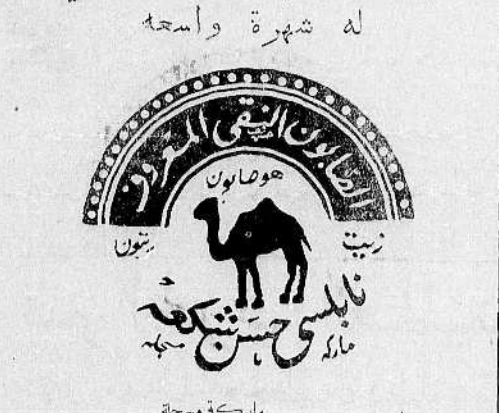 له شهرة واسعه
الصابون النقي المعروف
هو صابون
زيت زيتون
نابلسي حسن شبكعه
ماركه مسجله
ماركة مسجلة